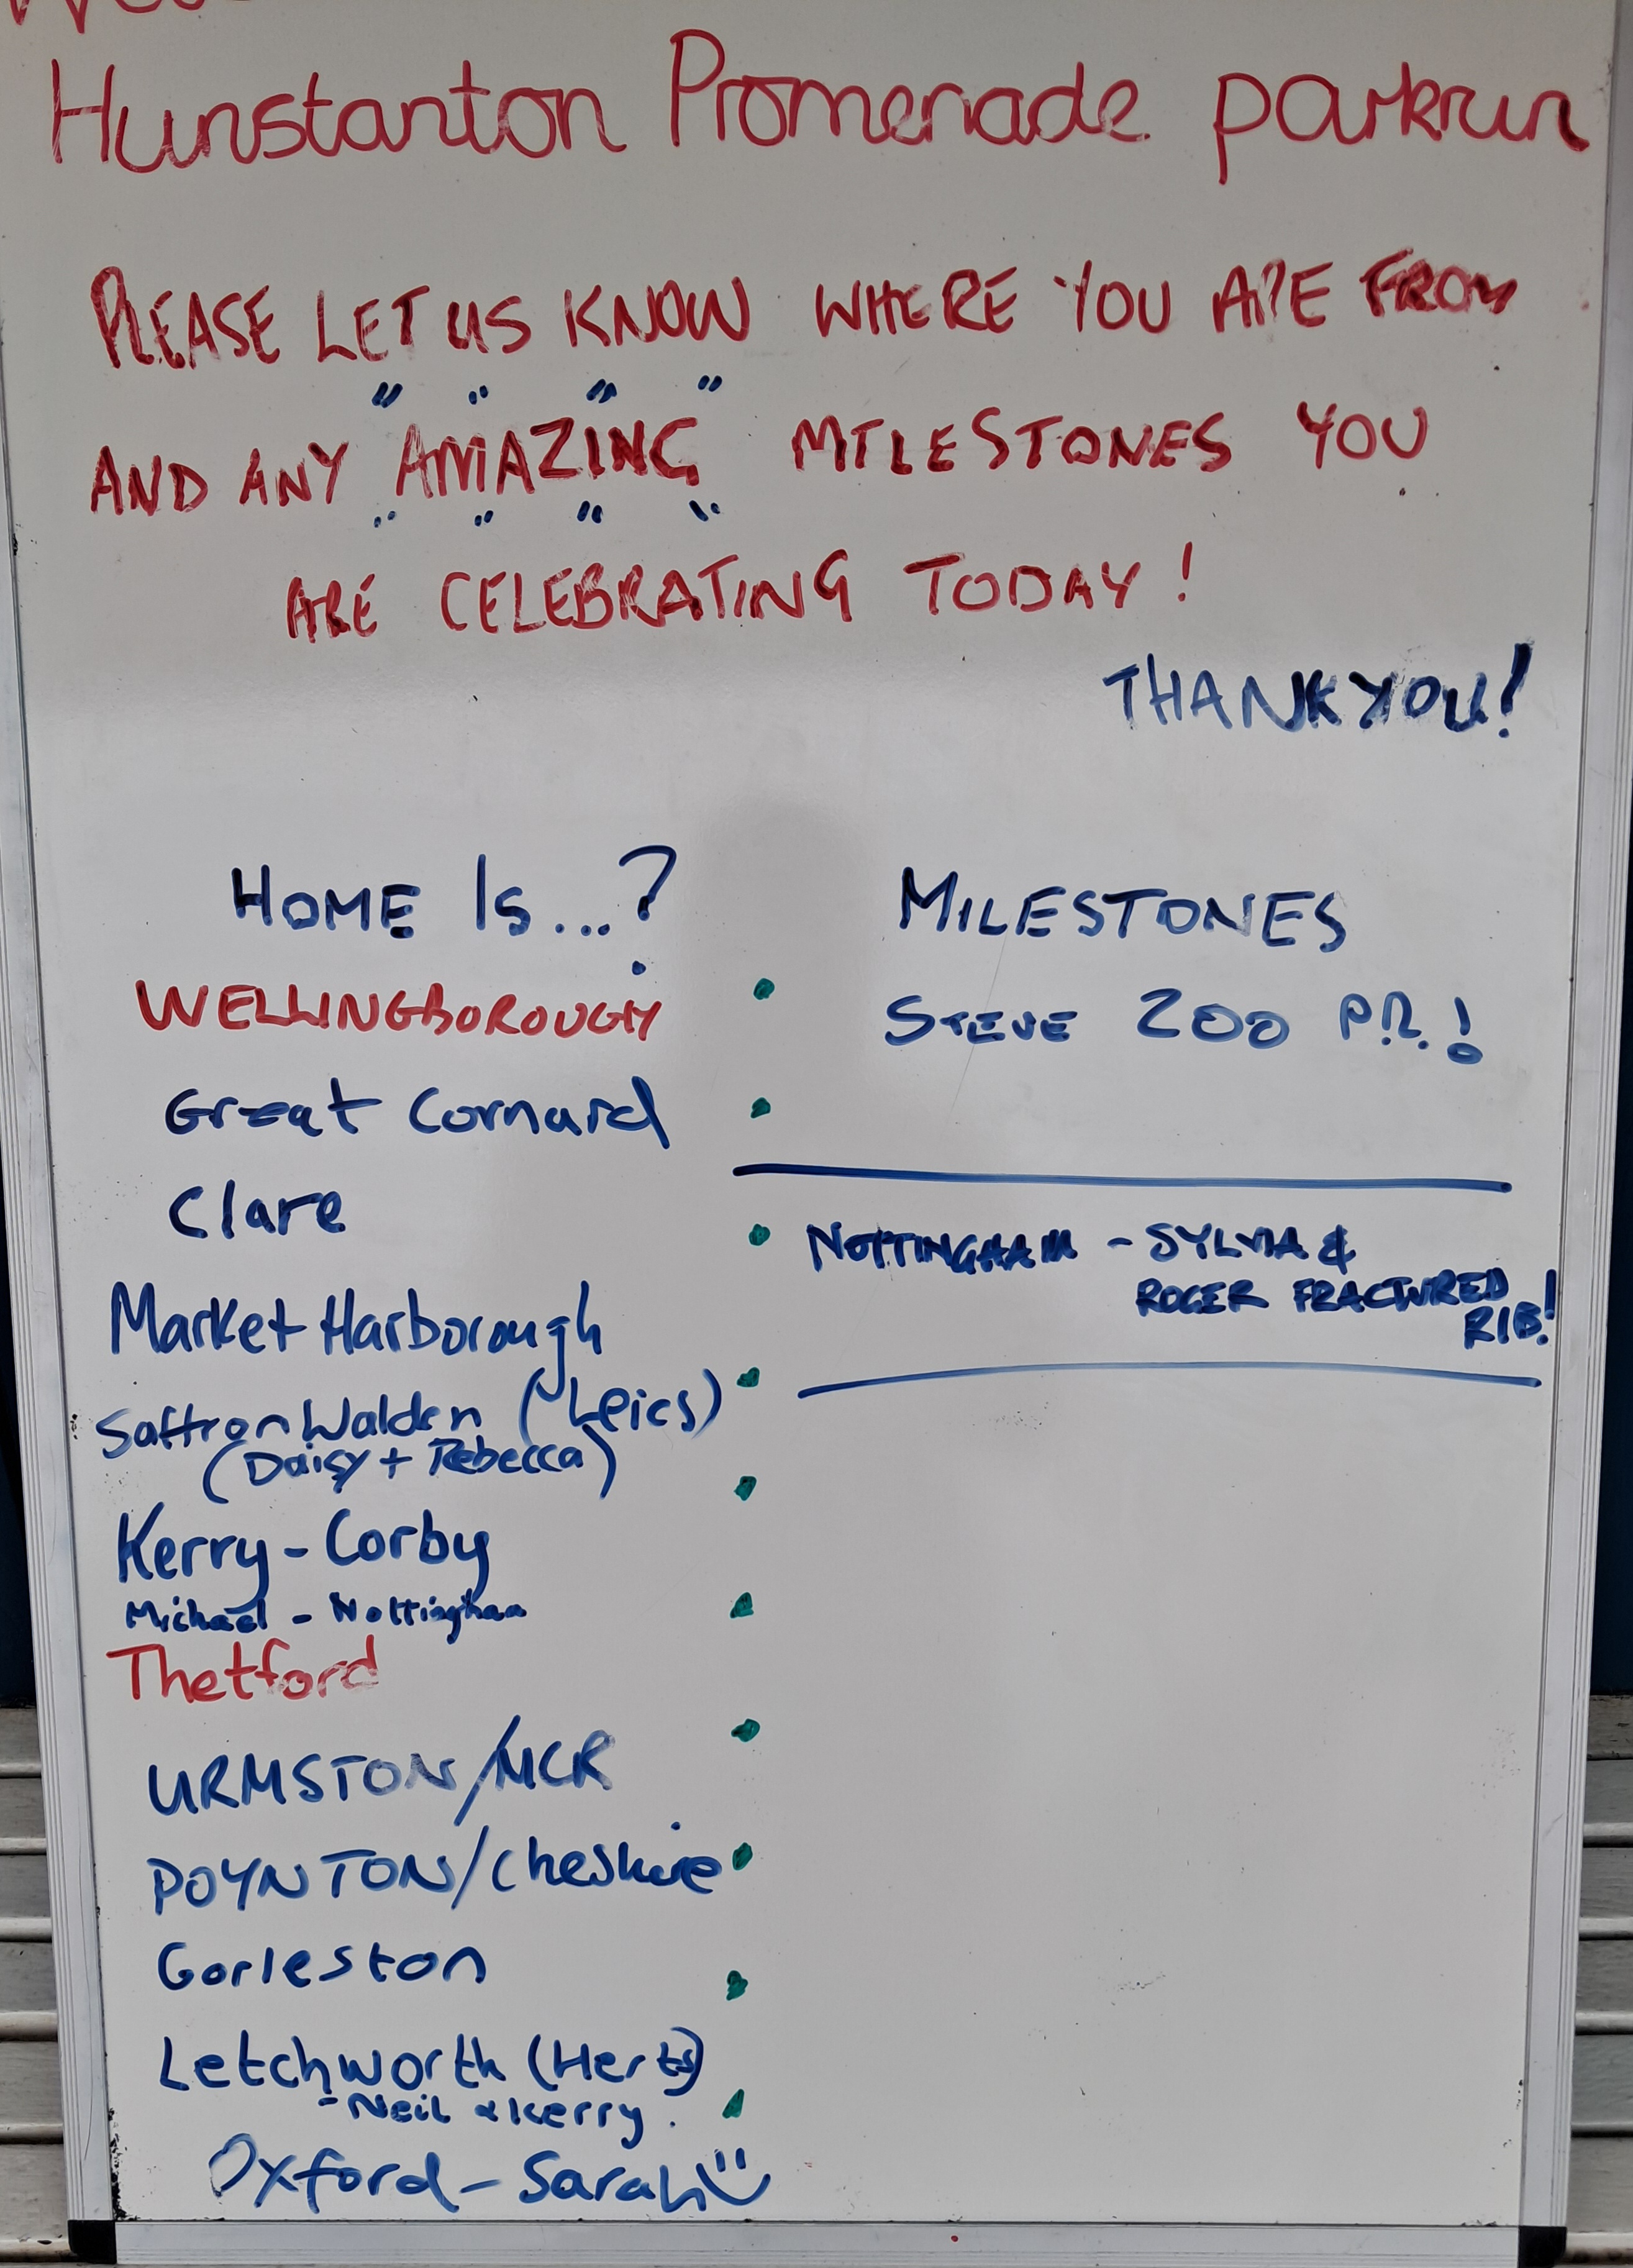 Hunstanton Promenade parkrun
PLEASE LET US KNOW WHERE YOU ARE FROM
AND ANY AMAZING MILESTONES YOU
ARE CELEBRATING TODAY!
THANK YOU!
HOME IS...?
WELLINGBOROUGH
Great Cornard
Clare
Market Harborough
(Leics)
Saffron Walden
(Daisy + Rebecca)
Kerry - Corby
Michael - Nottingham
Thetford
URMSTON/MCR
POYNTON/Cheshire
Gorleston
Letchworth (Herts)
- Neil & Kerry.
Oxford - Sarah
MILESTONES
STEVE 200 P.R.!
NOTTINGHAM - SYLVIA &
ROGER FRACTURED
RIB!